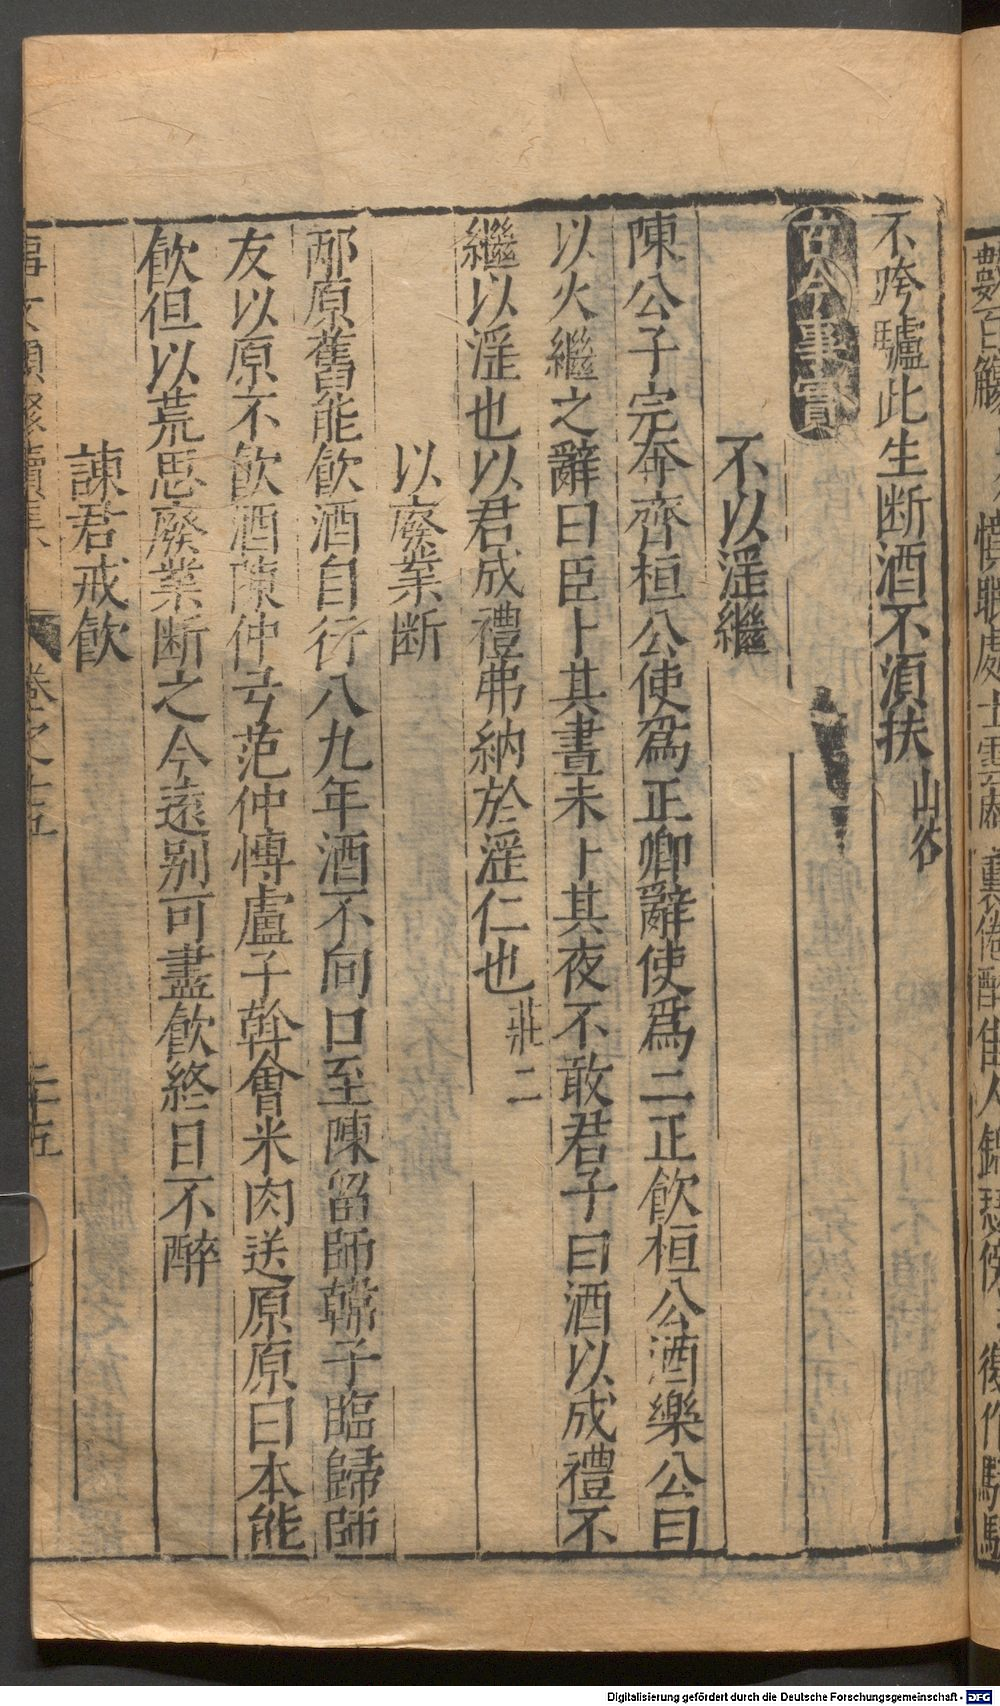 不跨驢此生断酒不須扶 山谷
古今事實
不以淫繼
陳公子完奔齊桓公使爲正卿辭使爲二正飲桓公酒樂公曰
以火繼之辭曰臣卜其晝未卜其夜不敢君子曰酒以成禮不
繼以淫也以君成禮弗納於淫仁也 莊二
以廢業断
邴原舊能飲酒自行八九年酒不向口至陳留師韓子臨歸師
友以原不飲酒陳仲弓范仲慱盧子斡會米肉送原原曰本能
飲但以荒思廢業断之今遠别可盡飲終日不醉
諌君戒飲
事文類聚續集 卷之十五 二十五
Digitalisierung gefördert durch die Deutsche Forschungsgemeinschaft - DFG